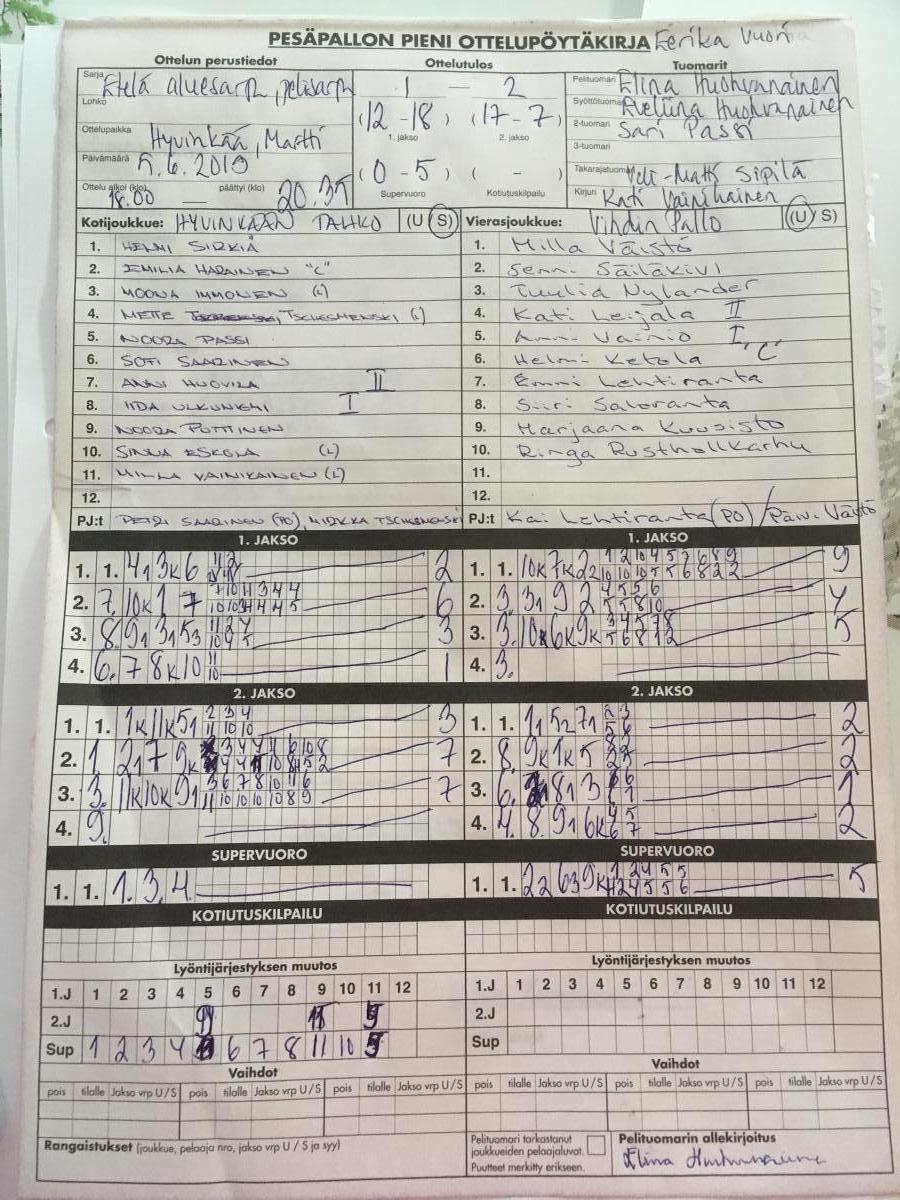 PESÄPALLON PIENI OTTELUPÖYTÄKIRJA Eerika Vuori
Ottelun perustiedot Ottelutulos Tuomarit
Sarja Etelä aluesarja, pelisarja 1 — 2 Pelituomari Elina Huohvanainen
Lohko (12 - 18) (17 - 7) Syöttötuomari Eveliina Huohvanainen
Ottelupaikka Hyvinkää, Martti 1. jakso 2. jakso 2-tuomari Sari Passi
3-tuomari
Päivämäärä 5.6.2019 (0 - 5) ( - ) Takarajatuomari Veli-Matti Sipilä
Ottelu alkoi (klo) 18.00 — päättyi (klo) 20.35 Supervuoro Kotiutuskilpailu Kirjuri Kati Vainikainen
Kotijoukkue: HYVINKÄÄN TAHKO (U S) Vierasjoukkue: Vihdin Pallo (U S)
1. HENNI SIRKIÄ 1. Milla Väistö
2. EMILIA HARAINEN "C" 2. Senni Säiläkivi
3. MOONA IMMONEN (L) 3. Tuulia Nylander
4. METTE TSCHESMENSKI (L) 4. Kati Leijala II
5. NOORA PASSI 5. Anni Vainio I
6. SOFI SAARINEN 6. Helmi Ketola "C"
7. ANNI HUOVILA II 7. Emmi Lehtiranta
8. IIDA ULKUNIEMI I 8. Siiri Saloranta
9. NOORA PUTTINEN 9. Marjaana Kuusisto
10. SINNA ESKOLA (L) 10. Ringa Rusthollkarhu
11. MILLA VAINIKAINEN (L) 11.
12. 12.
PJ:t PETRI SAARINEN (PO), MIRKKA TSCHESMENSKI PJ:t Kai Lehtiranta (PO) / Päivi Väistö
1. JAKSO 1. JAKSO
1. 1. 4 1 3K 6 2 1. 1. 10K 7K 2 9
2. 7. 10K 1 7 6 2. 3. 3 1 9 2 4
3. 8. 9 1 3 1 5 3 3 3. 3. 10K 6K 9K 5
4. 6. 7 8K 10 1 4. 3.
2. JAKSO 2. JAKSO
1. 1. 1K 11K 5 1 3 1. 1. 1 1 5 2 7 1 2
2. 1 2 1 7 9K 7 2. 8. 9K 1K 5 2
3. 3. 11K 10K 9 1 7 3. 6. 8 1 3 1
4. 9. 4. 4. 8. 9 1 6K 2
SUPERVUORO SUPERVUORO
1. 1. 1. 3. 4. 1. 1. 2 2 6 3 9K 5
KOTIUTUSKILPAILU KOTIUTUSKILPAILU
Lyöntijärjestyksen muutos Lyöntijärjestyksen muutos
1.J 1 2 3 4 5 6 7 8 9 10 11 12 1.J 1 2 3 4 5 6 7 8 9 10 11 12
2.J 9 11 5 2.J
Sup 1 2 3 4 6 7 8 11 10 5 Sup
Vaihdot Vaihdot
pois tilalle Jakso vrp U / S pois tilalle Jakso vrp U / S pois tilalle Jakso vrp U / S pois tilalle Jakso vrp U / S pois tilalle Jakso vrp U / S pois tilalle Jakso vrp U / S
Rangaistukset (joukkue, pelaaja nro, jakso vrp U / S ja syy) Pelituomari tarkastanut Pelituomarin allekirjoitus
joukkueiden pelaajaluvat.
Puutteet merkitty erikseen. Elina Huohvanainen